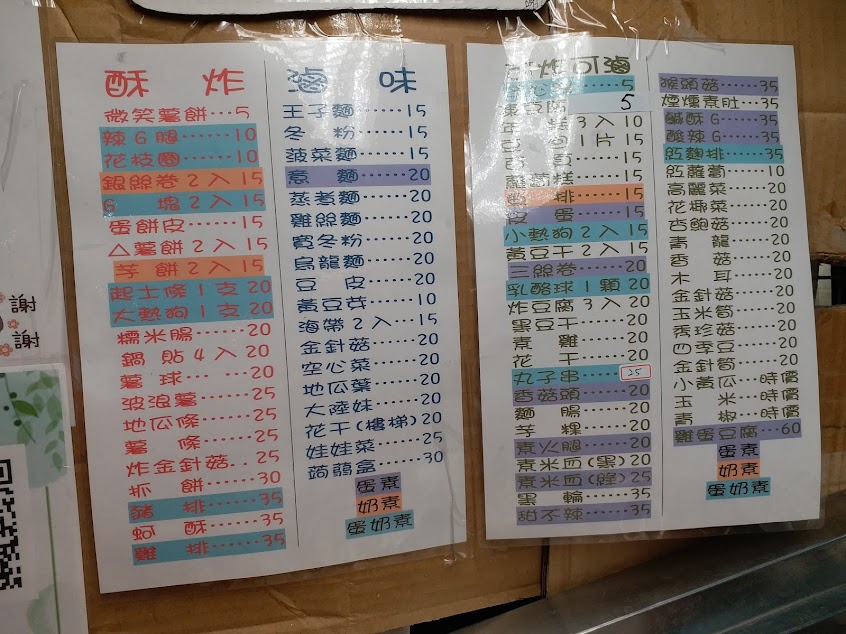 酥 炸
微笑薯餅…5
辣G腿……10
花枝圈……10
銀絲卷2入15
G 塊2入15
蛋餅皮……15
△薯餅2入15
芋餅2入15
起士條1支20
大熱狗1支20
糯米腸……20
鍋貼4入20
薯球……20
波浪薯……25
地瓜條……25
薯 條……25
炸金針菇..25
抓 餅……30
豬 排……35
蚵 酥……35
雞 排……35
滷 味
王子麵……15
冬 粉……15
菠菜麵……15
意 麵……20
蒸煮麵……20
雞絲麵……20
寬冬粉……20
烏龍麵……20
豆 皮……20
黃豆芽……10
海帶2入..15
金針菇……20
空心菜……20
地瓜葉……20
大陸妹……20
花干(樓梯)20
娃娃菜……25
蒟蒻盒……30
蛋素
奶素
蛋奶素
炸可滷
5
5
3入10
1片15
15
蘿蔔糕……15
排……15
皮 蛋……15
小熱狗2入15
黃豆干2入15
三絲卷……20
乳酪球1顆20
炸豆腐3入20
黑豆干……20
素 雞……20
花 干……20
丸子串……25
香菇頭……20
麵 腸……20
芋 粿……20
素火腿……20
素米血(黑)20
素米血(腥)25
黑 輪……35
甜不辣……35
猴頭菇……35
煙燻素肚..35
鹹酥G……35
酸辣G……35
紅麴排……35
紅蘿蔔……10
高麗菜……20
花椰菜……20
杏鮑菇……20
青 龍……20
香 菇……20
木 耳……20
金針菇……20
玉米筍……20
秀珍菇……20
四季豆……20
金針筍……20
小黃瓜…時價
玉 米…時價
青 椒…時價
雞蛋豆腐…60
蛋素
奶素
蛋奶素
謝
謝